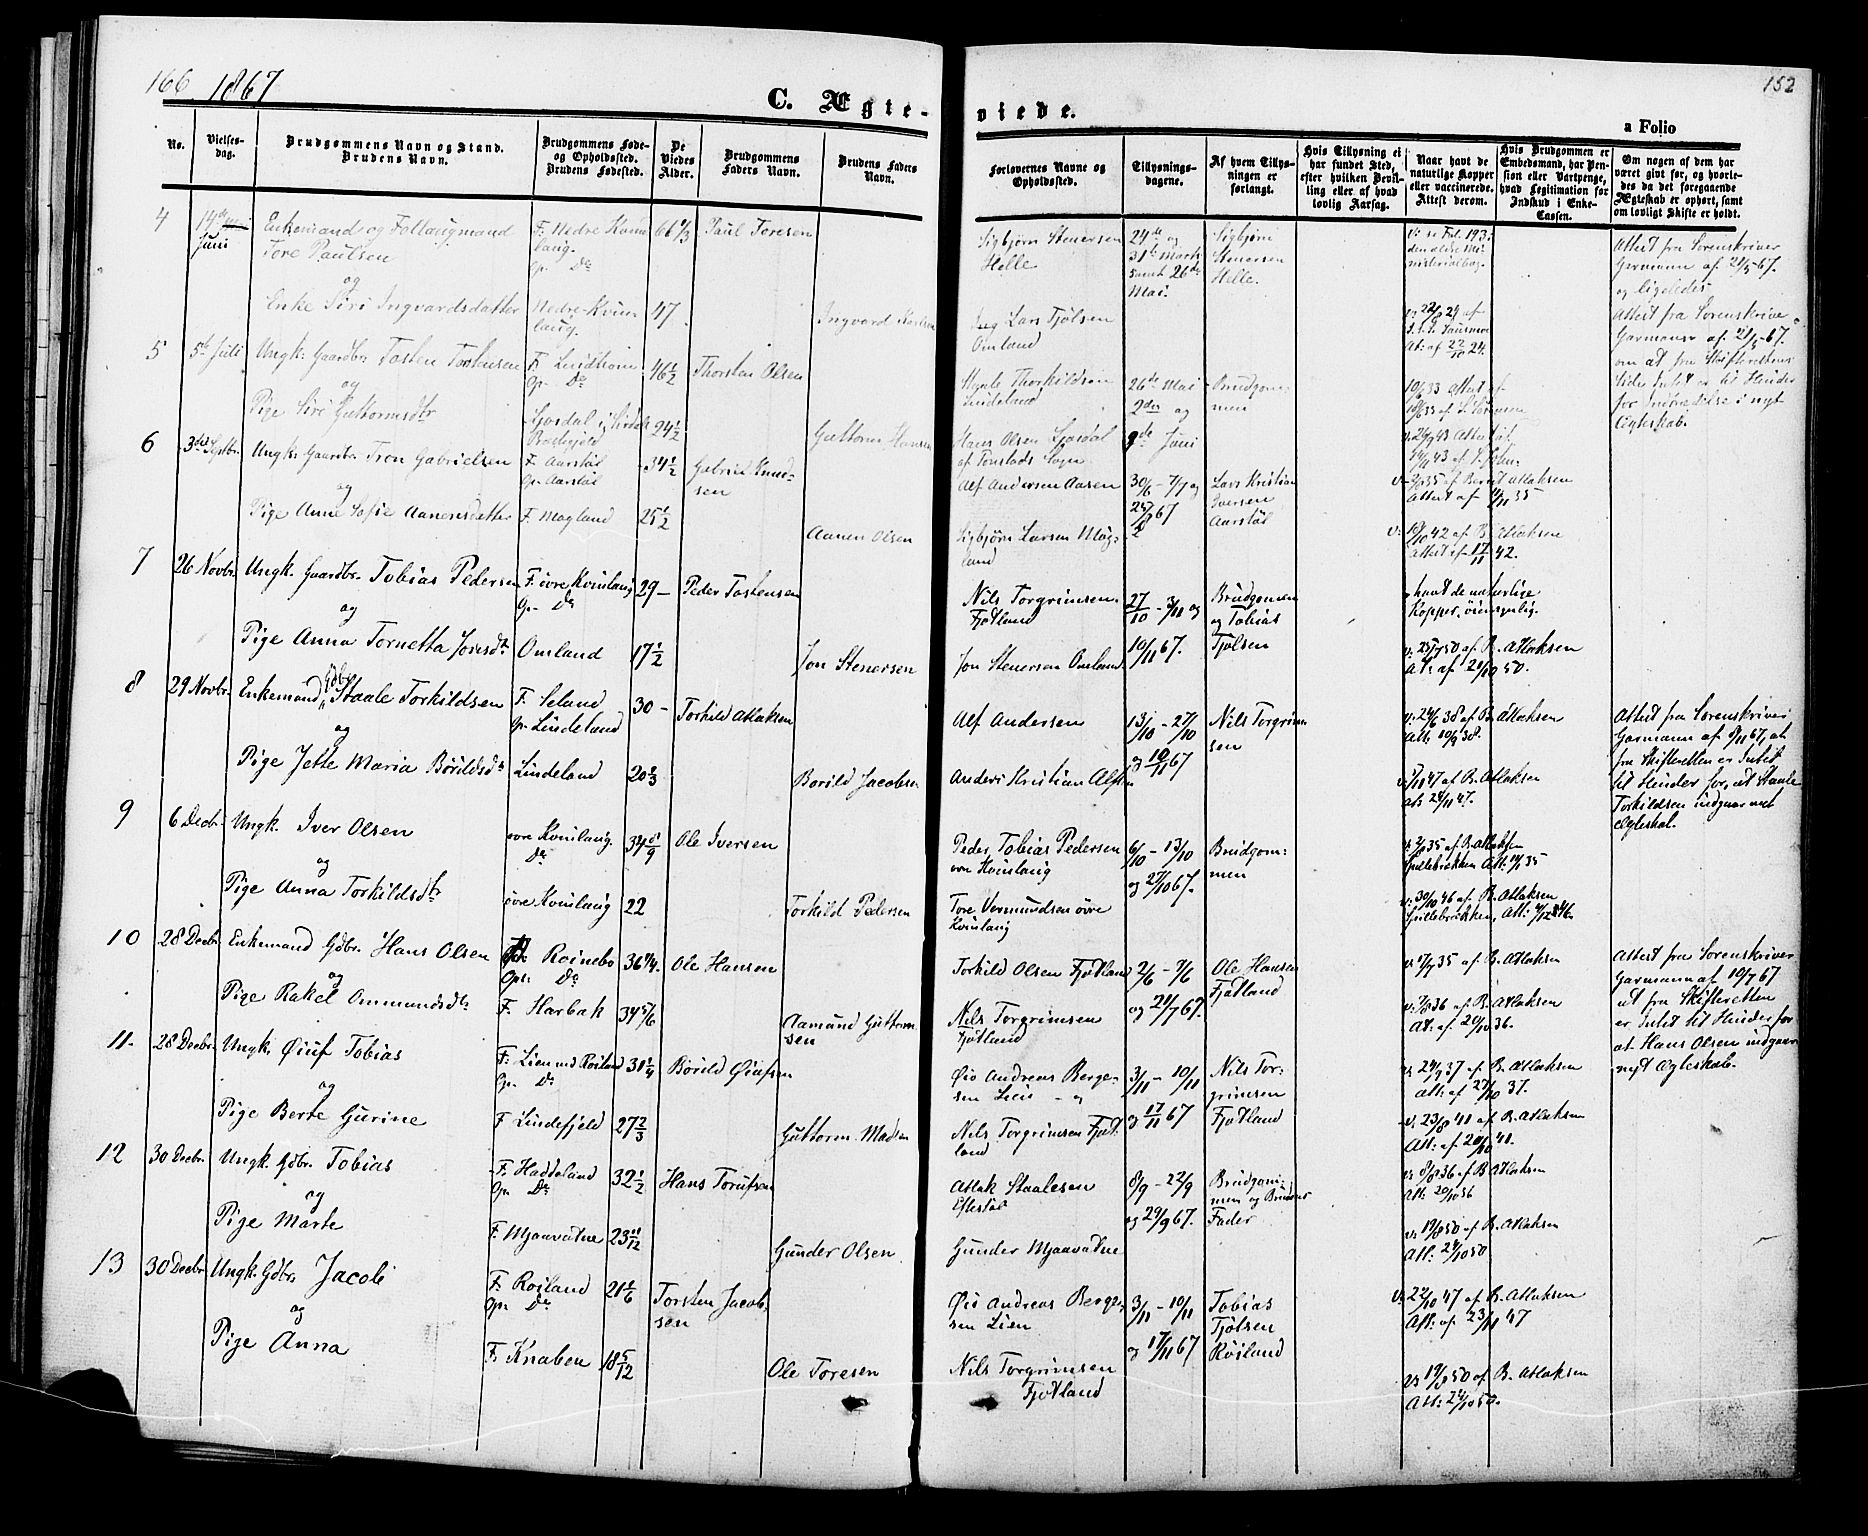 166 1867
C. Ægte-
No.
Vielses-
dag.
Brudgommens Navn og Stand.
Brudens Navn.
Brudgommens Føde-
og Opholdssted.
Brudens Fødested.
De
Viedes
Alder.
Brudgommens
Faders Navn.
Brudens Faders
Navn.
4
14de
Juni
Enkemand og Follaugmand
Tore Paulsen
og
Enke Siri Ingvardsdatter
F. Nedre Kvin
laug.
Op. Do
Nedre-Kvin
laug.
66
47
Paul Toresen
Ingvard
5
5te Juli
Ungk: Gaardbr: Tosten Tostensen
og
Pige Siri Guttormsdtr
F.
Op. Do
46 1/2
24 1/2
Thorsten Olsen
Guttorm Hansen
6
3die Septbr.
Ungk: Gaardbr: Tron Gabrielsen
og
Pige Anne Sofie Aanensdatter
F. Aarstøl
Op. Aarstøl
F. Magland
34 1/2
25 1/2
Gabriel Knud-
sen
Aanen Olsen
7
26 Novbr.
Ungk. Gaardbr. Tobias Pedersen
og
Pige Anna Tornetta Jonsdtr
F. övre Kvinlaug
Op. Do
Omland
29 -
17 1/2
Peder Tostensen
Jon Stenersen
8
29 Novbr.
Enkemand, Gdbr. Staale Torkildsen
og
Pige Jette Maria Børildsdtr
F. Seland
Op. Lindeland
Lindeland
30 -
20 1/3
Torkild Atlaksen
Børild Jacobsen
9
6 Decbr.
Ungk. Iver Olsen
og
Pige Anna Torkildsdtr
övre Kvinlaug.
Do
övre Kvinlaug
34 8/9
22
Ole Iversen
Torkild Pedersen
10
28 Decbr
Enkemand Gdbr. Hans Olsen
og
Pige Rakel Ommundsdtr
Roinebo
Op. Do
F. Harbak
36 1/4
34 5/6
Ole Hansen
Aamund Guttorm-
sen
11.
28 Decbr.
Ungk. Øiuf Tobias
og
Pige Berte Gurine
F. Lien ved Røiland
Op. Do
F Lindefjeld
31 1/4
27 2/3
Børild Øiufsen
Guttorm Madsen
12
30 Decbr.
Ungk. Gdbr. Tobias
og
Pige Marte
F. Haddeland
Op. Do
F. Mjaavatne
32 1/2
23 11/12
Hans Torufsen
Gunder Olsen
13
30 Decbr.
Ungk. Gdbr. Jacob
og
Pige Anna
F. Røiland
Op. Do
F. Knaben
21 1/6
18 5/12
Torsten Jacob-
sen
Ole Toresen
152
viede.
a Folio
Forlovernes Navne og
Opholdssted.
Tillysnings-
dagene.
Af hvem Tillys-
ningen er
forlangt.
Hvis Tillysning ei
har fundet Sted,
efter hvilken Bevil-
ling eller af hvad
lovlig Aarsag.
Naar havt de
naturlige Kopper
eller vaccinerede.
Attest derom.
Hvis Brudgommen er
Embedsmand, har Pen-
sion eller Vartpenge,
hvad Legitimation for
Indskud i Enke-
Cassen.
Om nogen af dem har
været givt før, og hvorle-
des da det foregaaende
Ægteskab er ophørt, samt
om lovligt Skifte er holdt.
Sigbjørn Stenersen
Helle
24de og
31te Marts
samt 26de
Mai.
Sigbjørn
Stenersen
Helle.
Attest fra Sorenskriver
Garmann af 21/5-67.
og ligeledes
Lars Tjølsen
Omland
Attest fra Sorenskrive
Garmann af 21/5-67.
om at fra Skifterettens
Side Intet er til Hinder
for Indtrædelse i nyt
Ægteskab.
Thorkildsen
Lindeland
26de Mai
2den og
9de Juni
Brudgom-
men
Hans Olsen
af Tonstads Sogn
Alf Andersen Aasen
30/6 - 7/7 og
67
Lars Kristian
Iversen
Aarstøl
v. 35 af Berent Atlaksen
Attest af 35
Sigbjørn Larsen Mag-
land
42 af B. Atlaksen
Attest af 17/11 42.
Nils Torgrimsen
Fjotland
27/10 - 3/11 og
10/11 67.
Brudgommen
og Tobias
Tjølsen
havt de naturlige
Kopper, öiensynlig.
Jon Stenersen Omland
50 af B. Atlaksen
At: af 21/10 50.
Alf Andersen
13/10 - 27/10
og 10/11 67
Nils Torgrim
sen
v: 24/6 38 af B. Atlaksen
Att. 10/9 38.
Attest fra Sorenskriver
Garmann af 8/11 67, at
fra Skifteretten er Intet
til Hinder for, at Staale
Torkildsen indgaar nyt
Ægteskab.
Anders Kristian Alfsen
47 af B. Atlaksen
at: 24/11 47.
Peder Tobias Pedersen
övre Kvinlaug
6/10 - 13/10
og 27/10 67.
Brudgom:
men
35 af B. Atlaksen
Tore Vermundsen övre
Kvinlaug
v: 30/10 46 af B. Atlaksen
Torkild Olsen Fjotland
2/6 - 7/6
og 21/7 67.
Ole Hansen
Fjotland
35 af B. Atlaksen
Attest fra Sorenskriver
Garmann af 10/7 67
at fra Skifteretten
er Intet til Hinder for
at Hans Olsen indgaar
nyt Ægteskab.
Nils Torgrimsen
Fjotland
36 af B. Atlaksen
At: af 20/10 36.
Øio Andreas Berge-
sen Lien - og
3/11 - 10/11
og 17/11 67
Nils Tor-
grimsen
Fjotland
37 af B. Atlaksen
att: af 27/10 37.
Nils Torgrimsen Fjot-
land
v: 23/8 41 af B. Atlaksen
Att. af 20/10 41.
Atlak Staalesen
Eftestøl
8/9 - 22/9
og 29/9 67.
Brudgom-
men og Brudens
Fader
v: 8/8 36 af B Atlaksen
Att: 20/10 36
Gunder Mjaavatne
v: 19/8 50 af B. Atlaksen
Att: 24/10 50
Øio Andreas Berge-
sen Lien
3/11 - 10/11
og 17/11 67
Tobias
Tjølsen
Røiland
v: 22/10 47 af B. Atlaksen
Att: af 23/11 47
Nils Torgrimsen
Fjotland
v: 19/8 50 af B. Atlaksen
Att: 24/10 50.